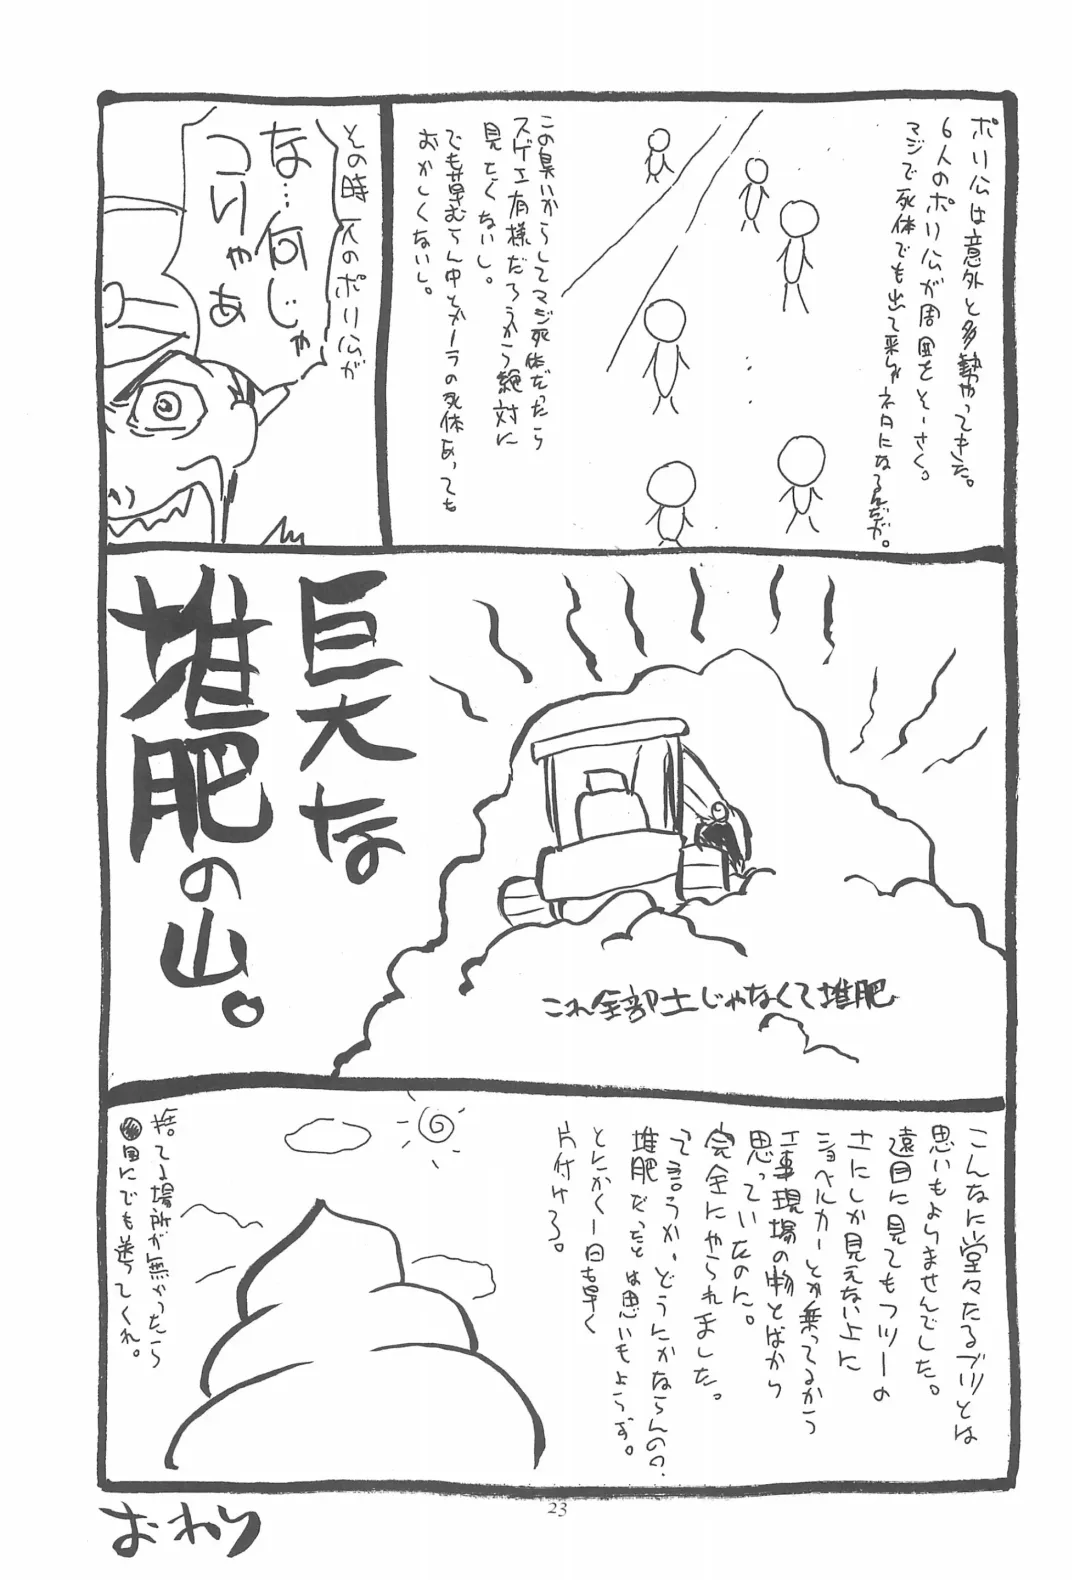 ポリ公は意外と多勢やってきた。
6人のポリ公が周囲をそーさく。
マジで死体でも出て来りゃネタになるんだが。
この臭いからしてマジ死体だったら
スゲエ有様だろうから絶対に
見たくないし。
でも草むらん中とかーラの死体あっても
おかしくないし。
その時一人のポリ公が
な…何じゃ
こりゃあ
巨大な
堆肥の山。
これ全部土じゃなくて堆肥
こんなに堂々たるブツとは
思いもよりませんでした。
遠目に見てもフツーの
土にしか見えない上に
ショベルカーとか乗ってるから
工事現場の物とばかり
思っていたのに。
完全にやられました。
て言うか、どうにかならんの?
堆肥だったとは思いもよらず。
とにかく一日も早く
片付けろ。
捨てる場所が無かったら
●国にでも送ってくれ。
23
おわり